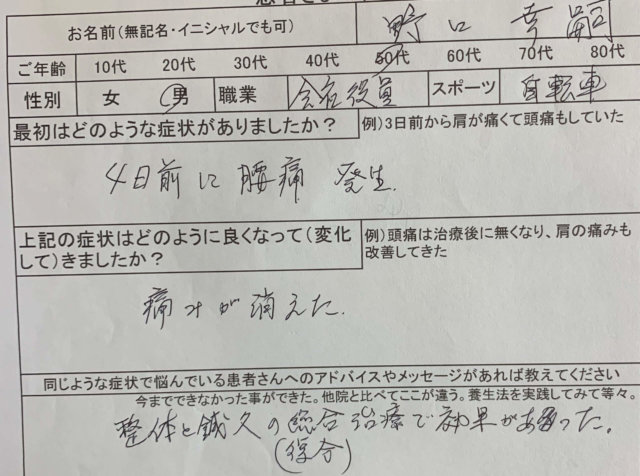 お名前(無記名・イニシャルでも可) 野に 幸嗣
ご年齢 10代 20代 30代 40代 50代 60代 70代 80代
性別 女 男 職業 会社役員 スポーツ 自転車
最初はどのような症状がありましたか? 例)3日前から肩が痛くて頭痛もしていた
4日前に腰痛 発生.
上記の症状はどのように良くなって(変化して)きましたか? 例)頭痛は治療後に無くなり、肩の痛みも改善してきた
痛みが消えた.
同じような症状で悩んでいる患者さんへのアドバイスやメッセージがあれば教えてください
今までできなかった事ができた。他院と比べてここが違う。養生法を実践してみて等々。
整体と鍼久の総合治療で効果があった。